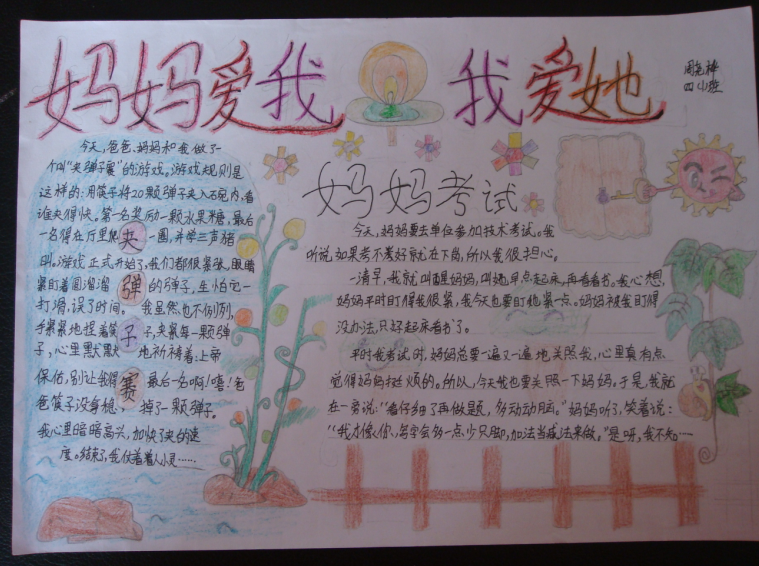 妈妈爱我 我爱她
四小班
今天,爸爸、妈妈和我做了一
个叫“夹弹子赛”的游戏。游戏规则是
这样的:用筷子将20颗弹子夹入碗内,看
谁夹得快,第一名奖励一颗水果糖,最后
一名得在厅里爬一圈,并学三声猪
叫。游戏正式开始了,我们都很紧张,眼睛
紧盯着圆溜溜的弹子,生怕它一
打滑,误了时间。我虽然也不例外,
手紧紧地捏着筷子,夹紧每一颗弹
子,心里默默地祈祷着:上帝
保佑,别让我得最后一名啊!嘻!爸
爸筷子没拿稳,掉了一颗弹子。
我心里暗暗高兴,加快了夹的速
度。结束了,我仗着着人小灵……
夹
弹
子
赛
妈妈考试
今天,妈妈要去单位参加技术考试。我
听说如果考不好就在下岗,所以我很担心。
一清早,我就叫醒妈妈,叫她早点起床,再看看书。我心想,
妈妈平时盯得我很紧,我今天也要盯她紧一点。妈妈被我盯得
没办法,只好起床看书了。
平时我考试时,妈妈总要一遍又一遍地关照我,心里真有点
觉得妈妈挺烦的。所以,今天我也要关照一下妈妈。于是,我就
在一旁说:“看仔细了再做题,多动动脑。”妈妈听了,笑着说:
“我才像你,写字会多一点,少只脚,加法当减法来做。”是呀,我不知……